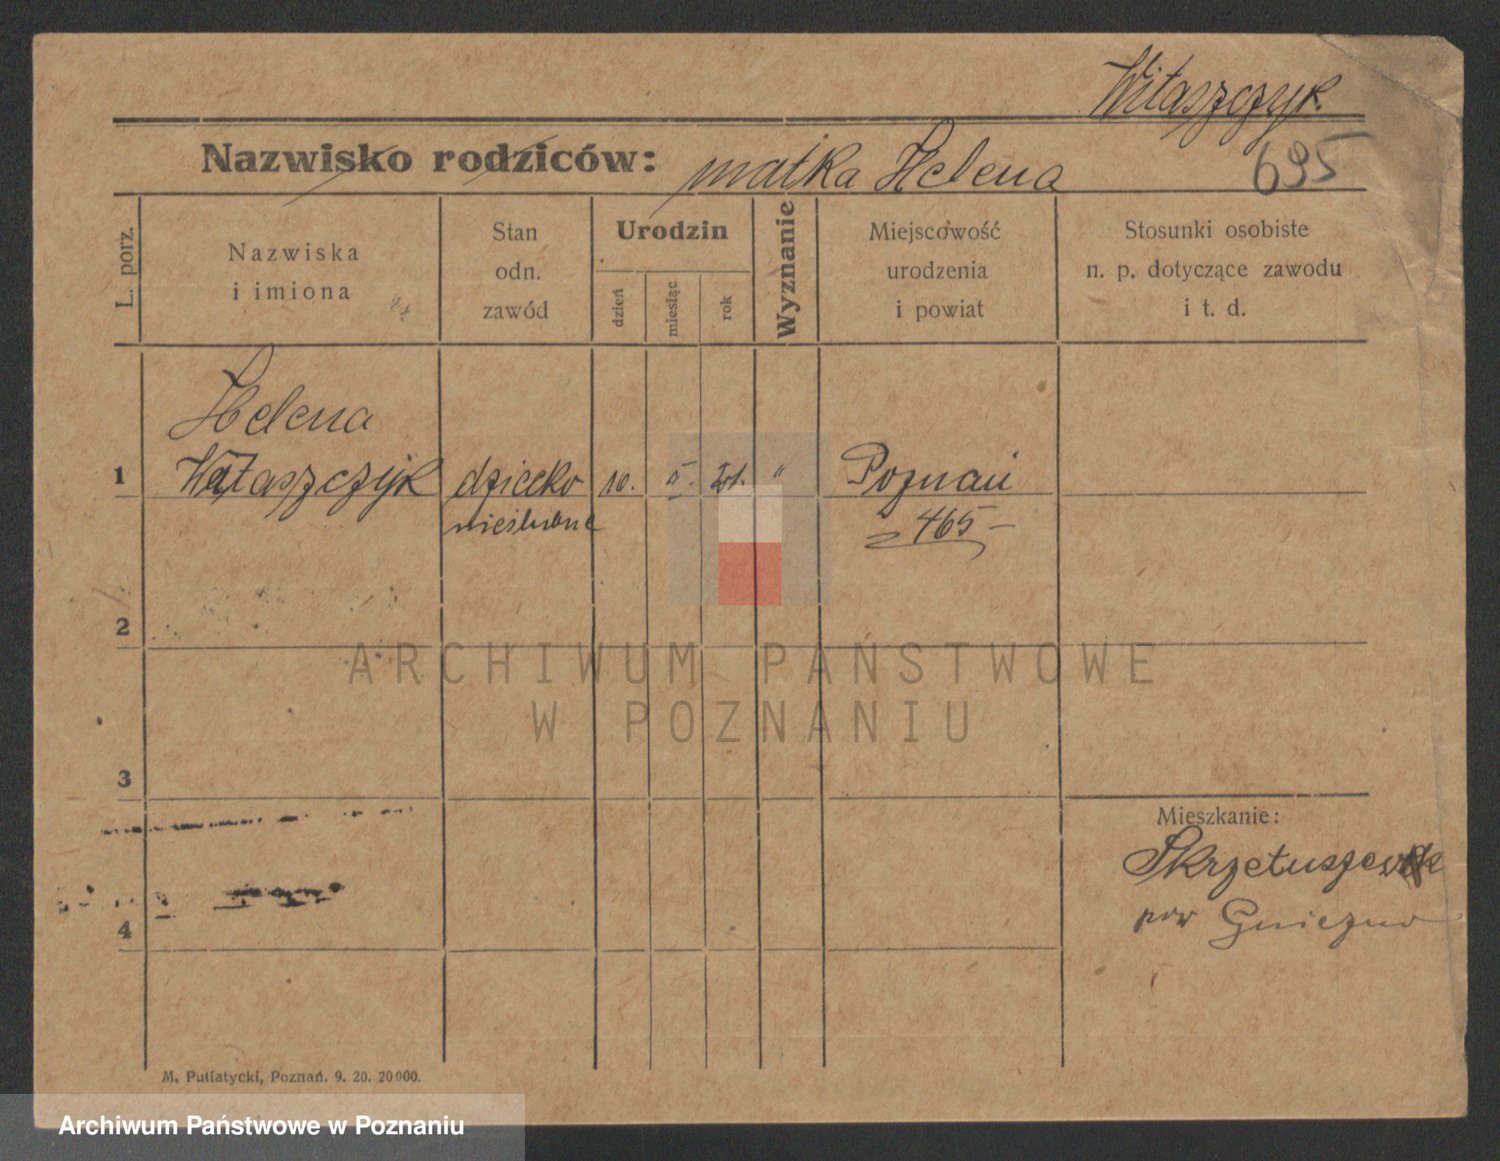 Witaszczyk
Nazwisko rodziców: matka Helena
695
L. porz.
Nazwiska
i imiona
Stan
odn.
zawód
Urodzin
dzień
miesiąc
rok
Wyznanie
Miejscowość
urodzenia
i powiat
Stosunki osobiste
n. p. dotyczące zawodu
i t. d.
Helena
1 Witaszczyk dziecko 10. II. " Poznań
nieślubne 465-
2
ARCHIWUM PAŃSTWOWE
W POZNANIU
3
Mieszkanie:
Skrzetuszewo
pow Gniezno
4
M. Putiatycki, Poznań. 9. 20. 20000.
Archiwum Państwowe w Poznaniu